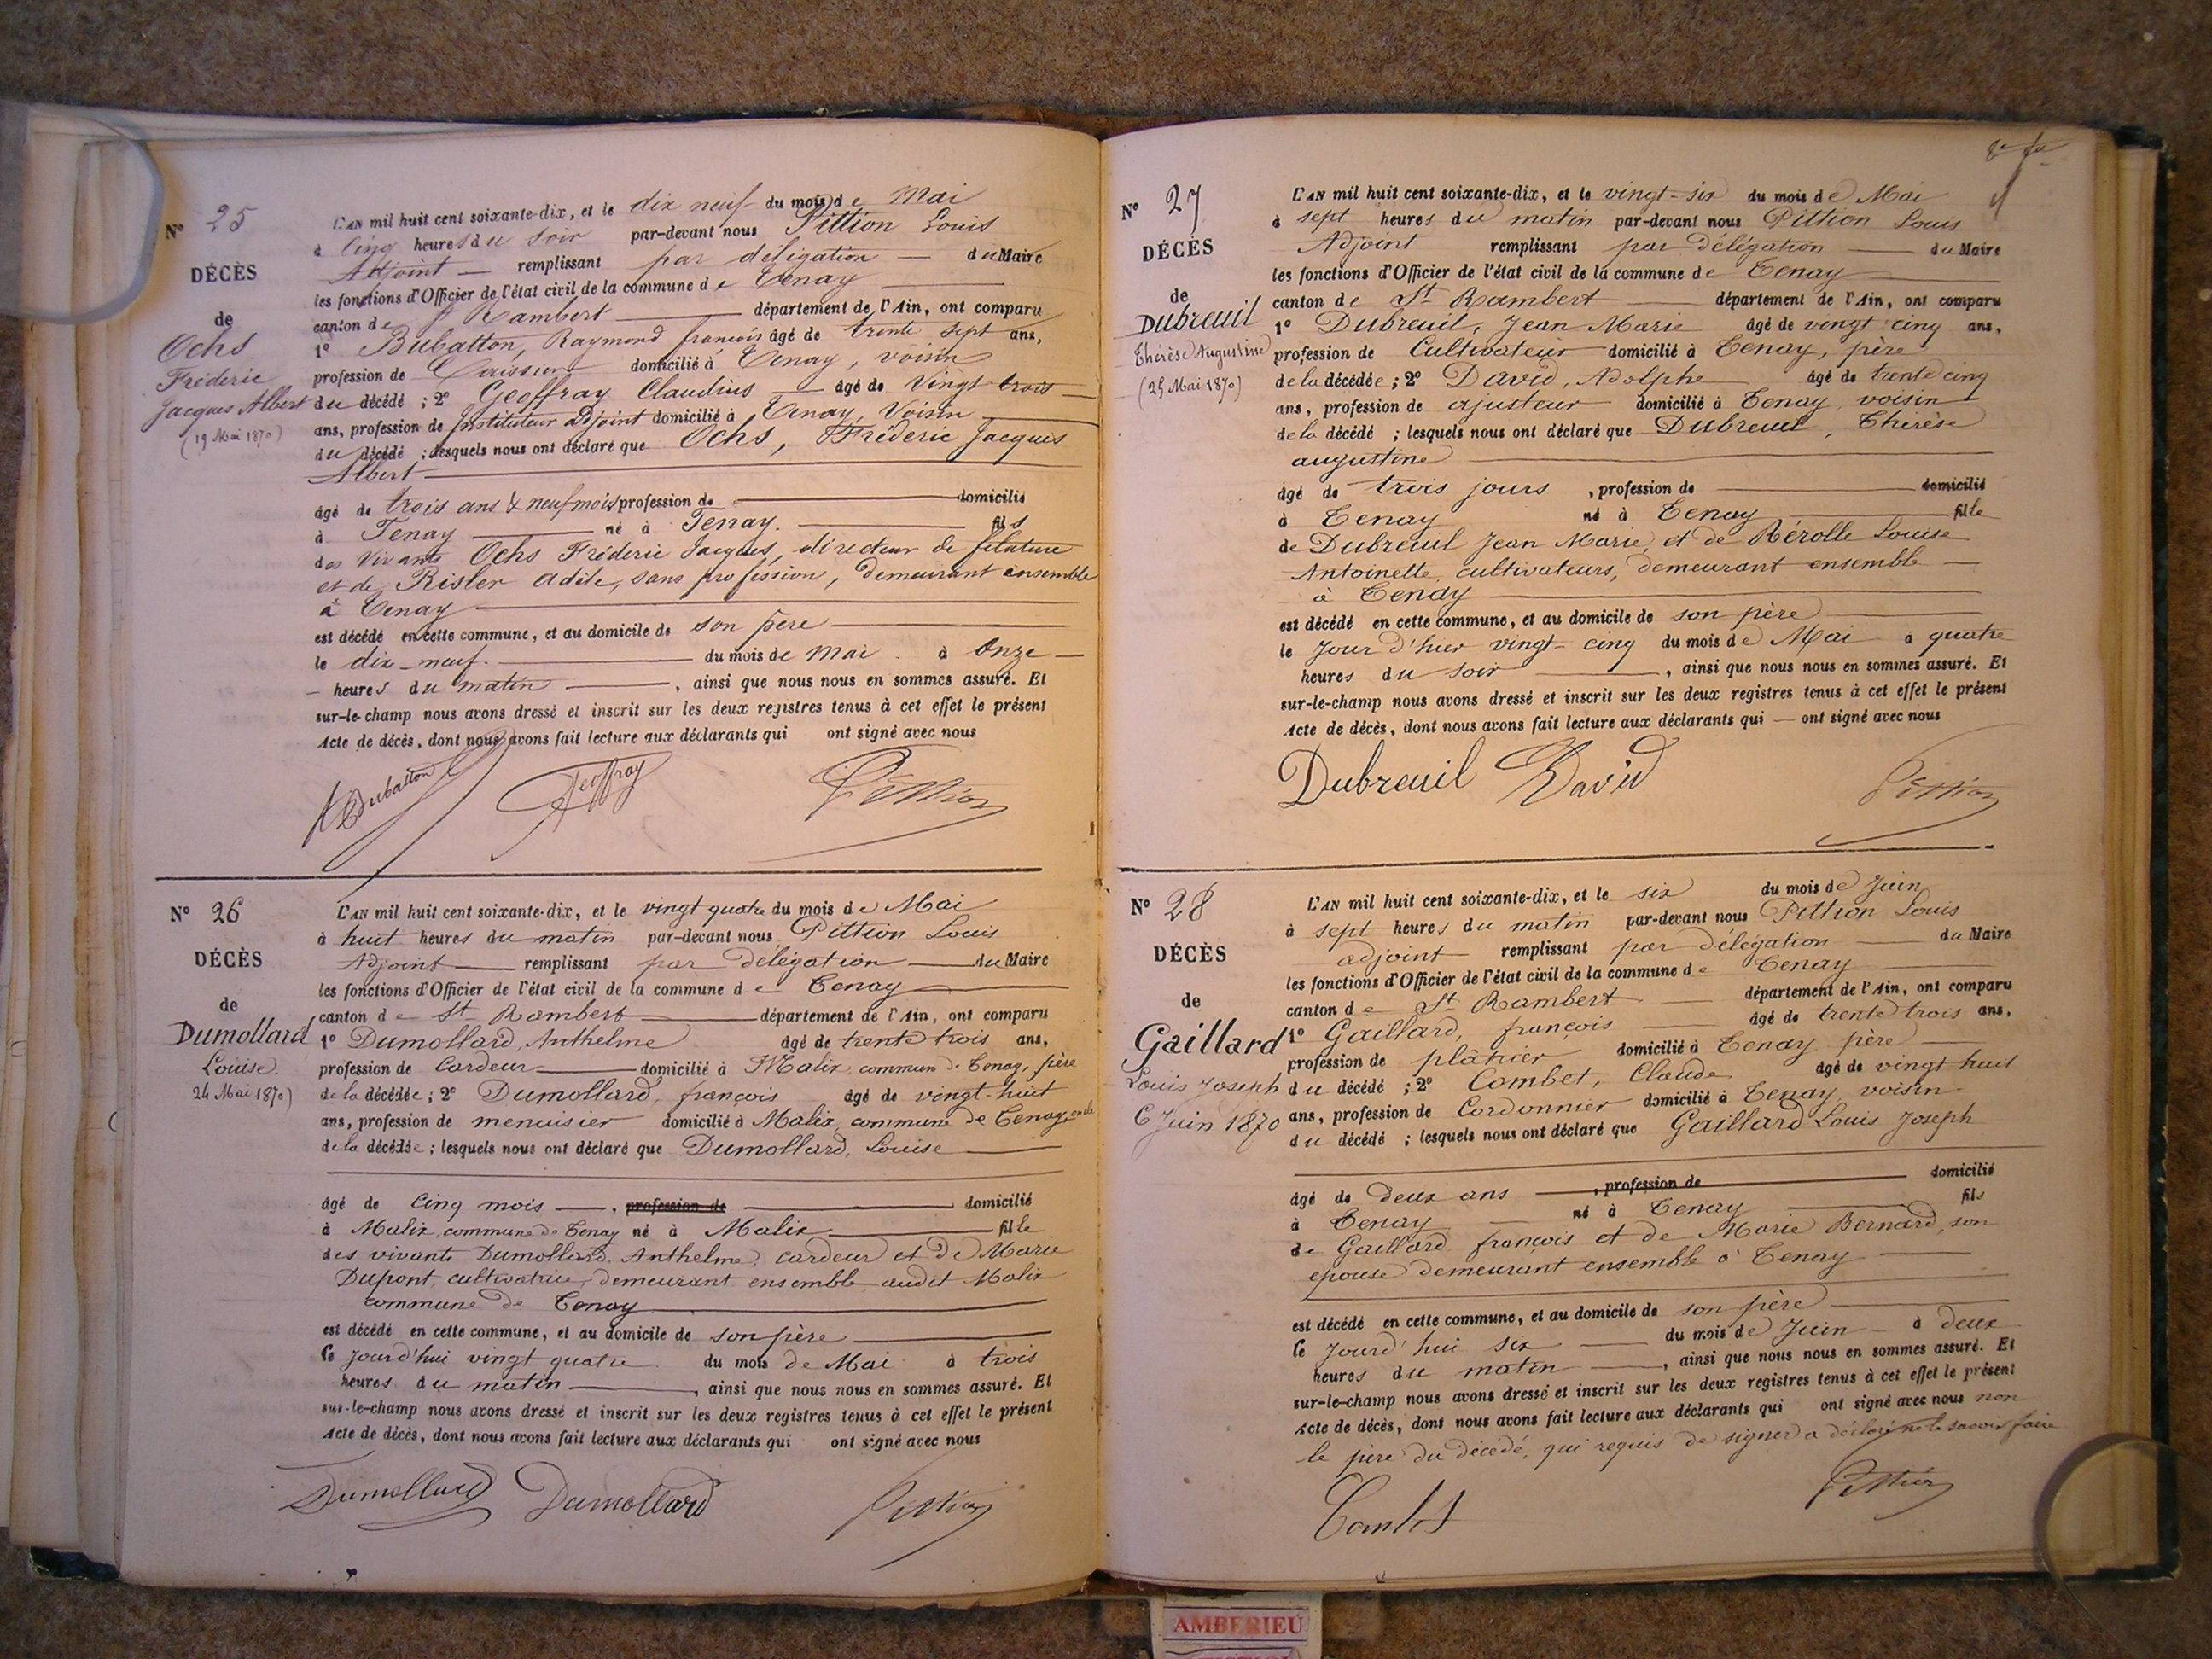 N° 25
DÉCÈS
de
Ochs
Fréderic
Jacques Albert
(19 Mai 1870)
L'AN mil huit cent soixante-dix, et le dix neuf du mois de Mai
à cinq heures du soir par-devant nous Pittion Louis
Adjoint — remplissant par délégation — du Maire
les fonctions d'Officier de l'état civil de la commune de Tenay
canton de St Rambert département de l'Ain, ont comparu
1° Bubatton, Raymond françois âgé de trente sept ans,
profession de Caissier domicilié à Tenay, voisin
du décédé ; 2° Geoffray Claudius âgé de vingt trois
ans, profession de Instituteur Adjoint domicilié à Tenay, Voisin
du décédé ; lesquels nous ont déclaré que Ochs, Fréderic Jacques
Albert
âgé de trois ans & neuf mois profession de domicilié
à Tenay né à Tenay. fils
des vivants Ochs Fréderic Jacques, directeur de filature
et de Risler Adèle, sans profession, demeurant ensemble
à Tenay
est décédé en cette commune, et au domicile de son père
le dix-neuf du mois de Mai à onze
heures du matin , ainsi que nous nous en sommes assuré. Et
sur-le-champ nous avons dressé et inscrit sur les deux registres tenus à cet effet le présent
Acte de décès, dont nous avons fait lecture aux déclarants qui ont signé avec nous
Bubatton Geoffray Pittion
N° 26
DÉCÈS
de
Dumollard
Louise
24 Mai 1870)
L'AN mil huit cent soixante-dix, et le vingt quatre du mois de Mai
à huit heures du matin par-devant nous Pittion Louis
Adjoint remplissant par délégation du Maire
les fonctions d'Officier de l'état civil de la commune de Tenay
canton de St Rambert département de l'Ain, ont comparu
1° Dumollard, Anthelme âgé de trente trois ans,
profession de Cardeur domicilié à Malix commune de Tenay, père
de la décédée ; 2° Dumollard, françois âgé de vingt-huit
ans, profession de menuisier domicilié à Malix, commune de Tenay, oncle
de la décédée ; lesquels nous ont déclaré que Dumollard, Louise
âgé de cinq mois , profession de domicilié
à Malix, commune de Tenay né à Malix fille
des vivants Dumollard, Anthelme, cardeur et de Marie
Dupont, cultivatrice, demeurant ensemble audit Malix
commune de Tenay
est décédé en cette commune, et au domicile de son père
le jourd'hui vingt quatre du mois de Mai à trois
heures du matin , ainsi que nous nous en sommes assuré. Et
sur-le-champ nous avons dressé et inscrit sur les deux registres tenus à cet effet le présent
Acte de décès, dont nous avons fait lecture aux déclarants qui ont signé avec nous
Dumollard Dumollard Pittion
N° 27
DÉCÈS
de
Dubreuil
Thérèse Augustine
(25 Mai 1870)
L'AN mil huit cent soixante-dix, et le vingt-six du mois de Mai
à sept heures du matin par-devant nous Pittion Louis
Adjoint remplissant par délégation du Maire
les fonctions d'Officier de l'état civil de la commune de Tenay
canton de St Rambert département de l'Ain, ont comparu
1° Dubreuil, Jean Marie âgé de vingt cinq ans,
profession de Cultivateur domicilié à Tenay, père
de la décédée ; 2° David, Adolphe âgé de trente cinq
ans, profession de ajusteur domicilié à Tenay, voisin
de la décédé ; lesquels nous ont déclaré que Dubreuil, Thérèse
augustine
âgé de trois jours , profession de domicilié
à Tenay né à Tenay fille
de Dubreuil Jean Marie, et de Rérolle Louise
Antoinette, cultivateurs, demeurant ensemble
à Tenay
est décédé en cette commune, et au domicile de son père
le jour d'hier vingt-cinq du mois de Mai à quatre
heures du soir , ainsi que nous nous en sommes assuré. Et
sur-le-champ nous avons dressé et inscrit sur les deux registres tenus à cet effet le présent
Acte de décès, dont nous avons fait lecture aux déclarants qui — ont signé avec nous
Dubreuil David Pittion
N° 28
DÉCÈS
de
Gaillard
Louis Joseph
6 Juin 1870
L'AN mil huit cent soixante-dix, et le six du mois de Juin
à sept heures du matin par-devant nous Pittion Louis
adjoint remplissant par délégation du Maire
les fonctions d'Officier de l'état civil de la commune de Tenay
canton de St Rambert département de l'Ain, ont comparu
1° Gaillard, françois âgé de trente trois ans,
profession de plâtrier domicilié à Tenay père
du décédé ; 2° Combet, Claude âgé de vingt huit
ans, profession de Cordonnier domicilié à Tenay, voisin
du décédé ; lesquels nous ont déclaré que Gaillard Louis Joseph
âgé de deux ans , profession de domicilié
à Tenay né à Tenay fils
de Gaillard françois et de Marie Bernard, son
epouse demeurant ensemble à Tenay
est décédé en cette commune, et au domicile de son père
le jourd'hui six du mois de Juin à deux
heures du matin , ainsi que nous nous en sommes assuré. Et
sur-le-champ nous avons dressé et inscrit sur les deux registres tenus à cet effet le présent
Acte de décès, dont nous avons fait lecture aux déclarants qui ont signé avec nous non
le père du décédé, qui requis de signer a déclaré ne le savoir faire
Combet Pittion
AMBERIEU